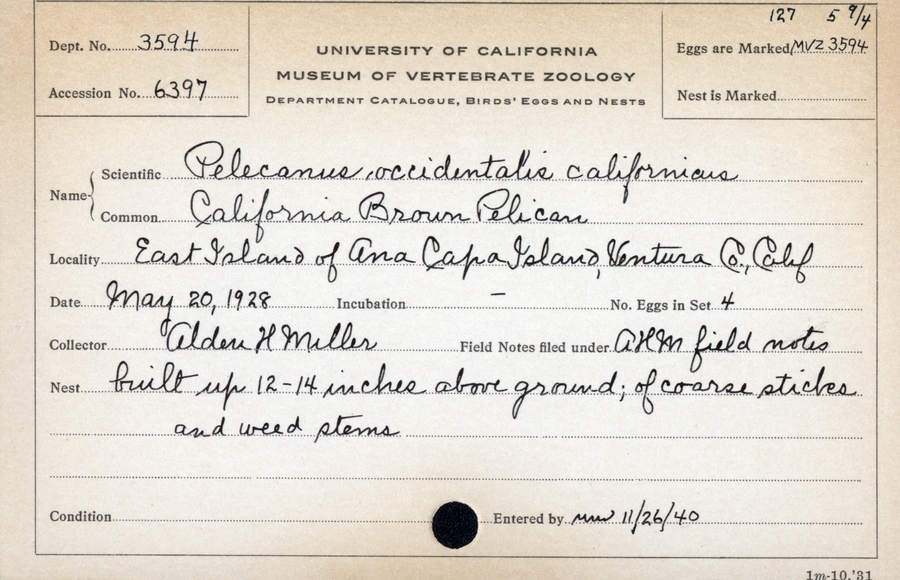 127 5 9/4
Dept. No. 3594
UNIVERSITY OF CALIFORNIA
MUSEUM OF VERTEBRATE ZOOLOGY
DEPARTMENT CATALOGUE, BIRDS' EGGS AND NESTS
Eggs are Marked MVZ 3594
Accession No. 6397
Nest is Marked
Name { Scientific Pelecanus occidentalis californicus
Common California Brown Pelican
Locality East Island of Ana Capa Island, Ventura Co., Calif
Date May 20, 1928 Incubation – No. Eggs in Set 4
Collector Alden H Miller Field Notes filed under AHM field notes
Nest built up 12-14 inches above ground; of coarse sticks
and weed stems
Condition Entered by 11/26/40
1m-10,'31